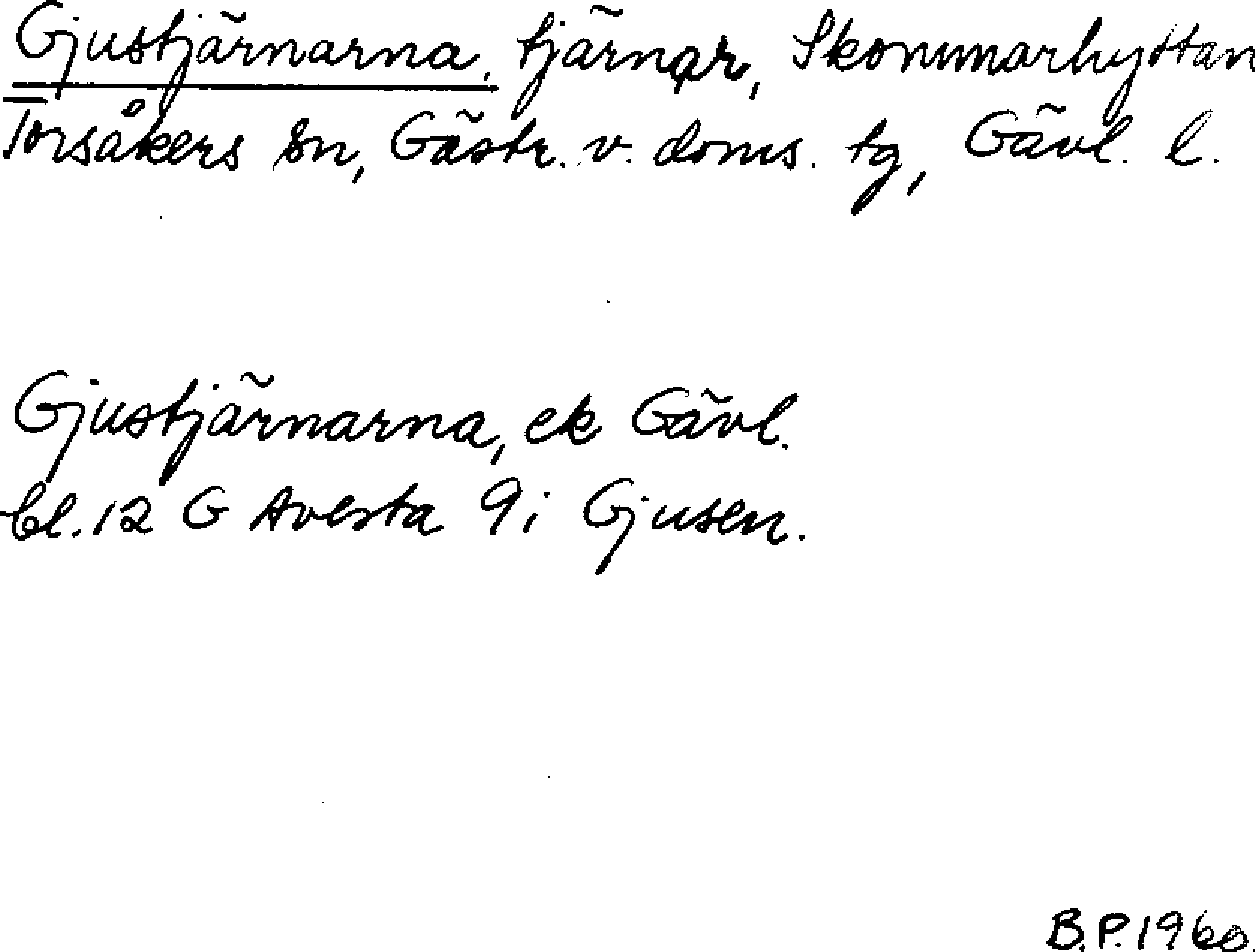 Gjustjärnarna, tjärnar, Skommarhyttan
Torsåkers sn, Gästr. v. doms. tg, Gävl. l.
Gjustjärnarna, ek Gävl.
bl. 12 G Avesta 9i Gjusen.
B.P. 1960.